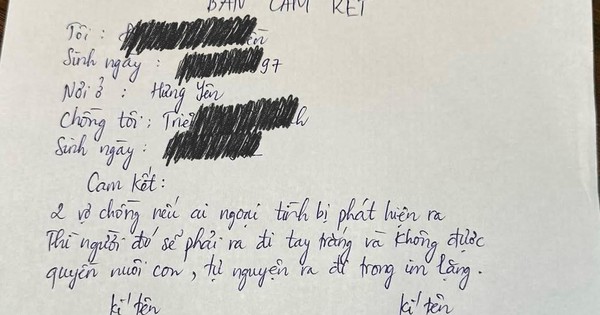 BẢN CAM KẾT
Tôi :
Sinh ngày : 97
Nơi ở : Hưng Yên
Chồng tôi : Triệ h
Sinh ngày :
Cam kết :
2 vợ chồng nếu ai ngoại tình bị phát hiện ra
Thì người đó sẽ phải ra đi tay trắng và không được
quyền nuôi con, tự nguyện ra đi trong im lặng.
kí tên kí tên